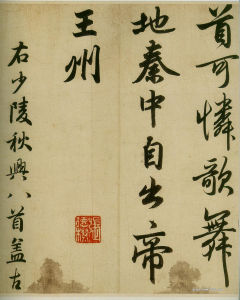 首可憐歌舞
地秦中自古帝
王州
右少陵秋興八首蓋古